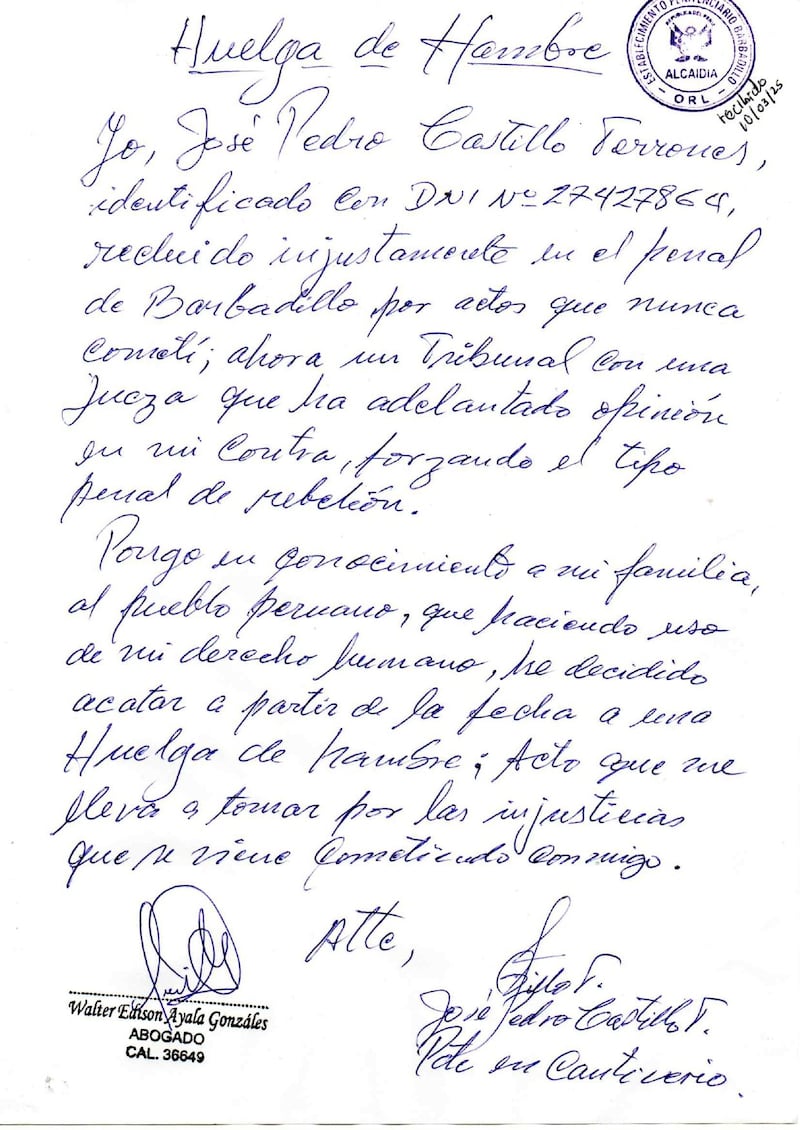 Huelga de Hambre
ESTABLECIMIENTO PENITENCIARIO BARBADILLO
REPUBLICA DEL PERU
ALCAIDIA
- ORL -
recibido
10/03/25
Yo, José Pedro Castillo Terrones,
identificado con DNI Nº 27427864,
recluido injustamente en el penal
de Barbadillo por actos que nunca
cometí; ahora un Tribunal con una
Jueza que ha adelantado opinión
en mi contra, forzando el tipo
penal de rebelión.
Pongo en conocimiento a mi familia,
al pueblo peruano, que haciendo uso
de mi derecho humano, he decidido
acatar a partir de la fecha a una
Huelga de hambre; Acto que me
lleva a tomar por las injusticias
que se viene cometiendo conmigo.
Atte,
Walter Edison Ayala Gonzáles
ABOGADO
CAL. 36649
José Pedro Castillo T.
Pdte en Cautiverio.